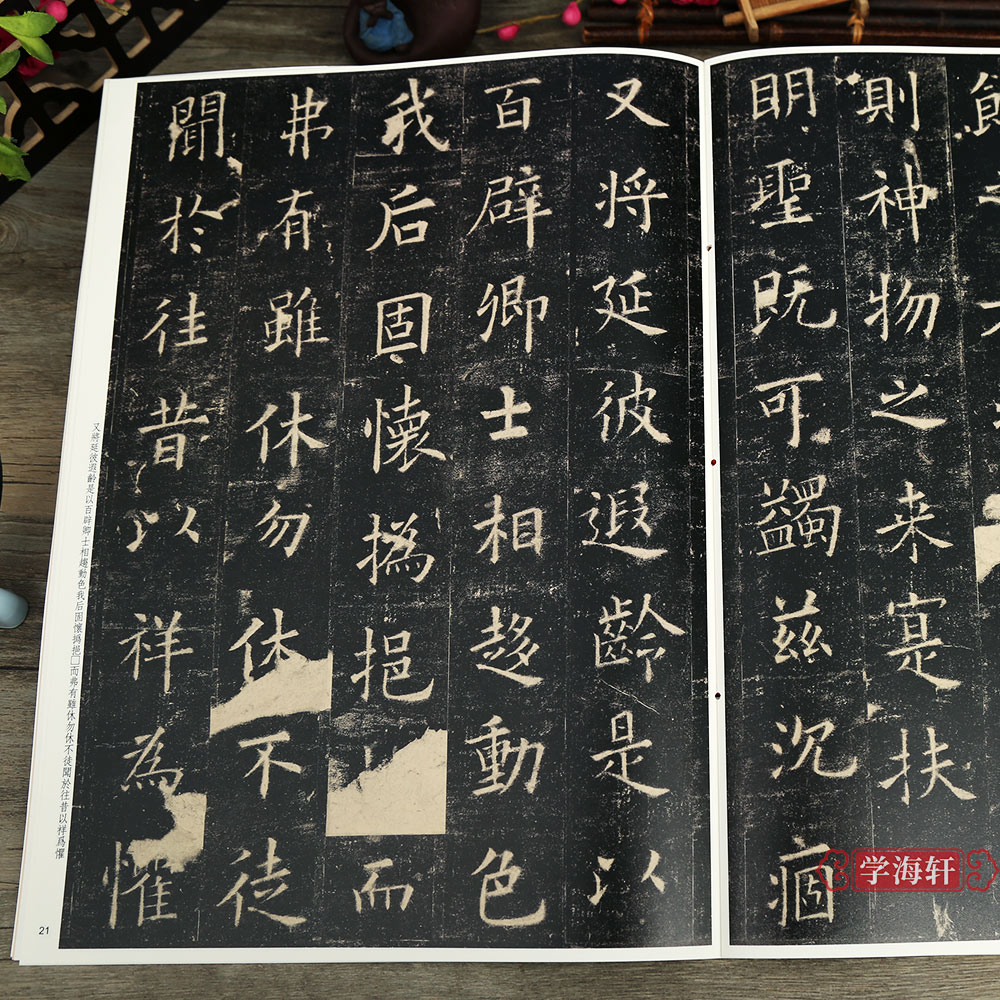 則神物之来寔扶
明聖既可蠲兹沉痼
又将延彼遐齡是以
百辟卿士相趍動色
我后固懷撝挹而
弗有雖休勿休不徒
聞於往昔以祥為懼
又將延彼遐齡是以百辟卿士相趨動色我后固懷撝挹□而弗有雖休勿休不徒聞於往昔以祥爲懼
21
学海轩